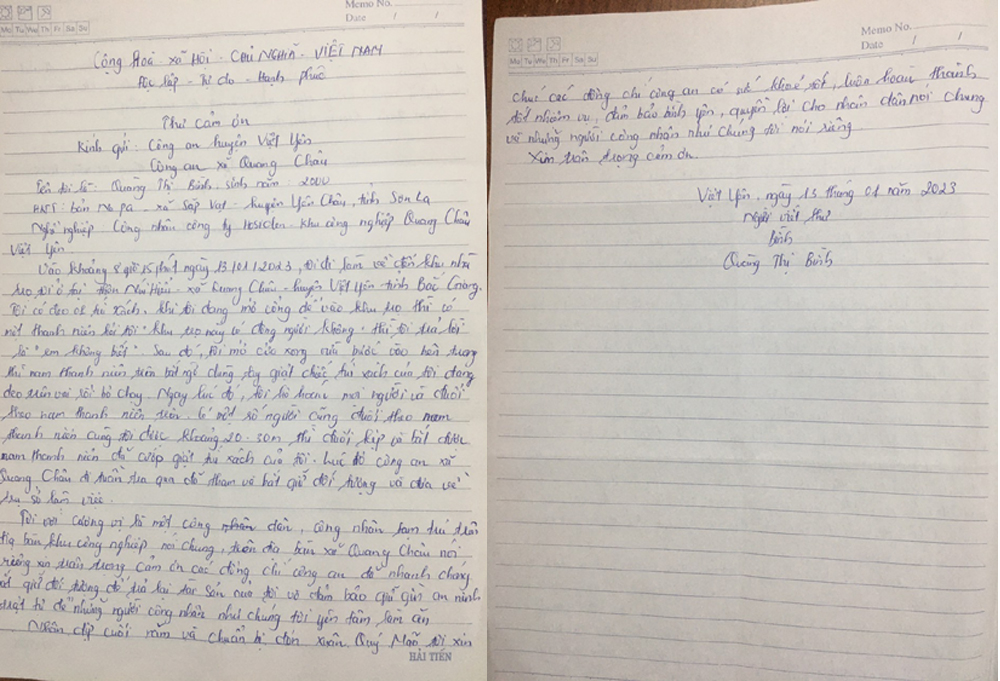 Memo No.
Date / /
Mo Tu We Th Fr Sa Su
Cộng Hoà xã Hội - CHỦ NGHĨA - VIỆT NAM
Độc lập - Tự do - Hạnh phúc
Thư cảm ơn
Kính gửi: Công an huyện Việt Yên
Công an xã Quang Châu
Tên tôi là: Quàng Thị Bình, sinh năm: 2000
HKTT: bản Na Pa - xã Sập Vạt - huyện Yên Châu, tỉnh Sơn La
Nghề nghiệp: Công nhân công ty Hosiden - khu công nghiệp Quang Châu
Việt Yên
Vào khoảng 8 giờ 15 phút ngày 13/01/2023, tôi đi làm về đến khu nhà
trọ, tôi ở tại thôn Núi Hiểu - xã Quang Châu - huyện Việt Yên tỉnh Bắc Giang.
Tôi có đeo túi xách, khi tôi đang mở cổng để vào khu trọ thì có
một thanh niên hỏi tôi "khu trọ này có đông người không" thì tôi trả lời
là "em không biết". Sau đó, tôi mở cửa xong vừa bước vào bên trong
thì nam thanh niên trên bất ngờ dùng tay giật chiếc túi xách của tôi đang
đeo trên vai rồi bỏ chạy. Ngay lúc đó, tôi hô hoán mọi người và đuổi
theo nam thanh niên trên. Có một số người cùng đuổi theo nam
thanh niên cùng tôi được khoảng 20-30m thì đuổi kịp và bắt được
nam thanh niên đã cướp giật túi xách của tôi. Lúc đó công an xã
Quang Châu đi tuần tra qua đã tham và bắt giữ đối tượng và đưa về
trụ sở làm việc.
Tôi với cương vị là một công nhân dân, công nhân tạm trú trên
địa bàn khu công nghiệp nói chung, trên địa bàn xã Quang Châu nói
riêng xin trân trọng cảm ơn các đồng chí công an đã nhanh chóng
bắt giữ đối tượng để trả lại tài sản cho tôi và đảm bảo giữ gìn an ninh
trật tự để những người công nhân như chúng tôi yên tâm làm ăn
Nhân dịp cuối năm và chuẩn bị đón xuân Quý Mão tôi xin
HẢI TIẾN
Memo No.
Date / /
Mo Tu We Th Fr Sa Su
chúc các đồng chí công an có sức khoẻ tốt, luôn hoàn thành
tốt nhiệm vụ, đảm bảo bình yên, quyền lợi cho nhân dân nói chung
và những người công nhân như chúng tôi nói riêng
Xin trân trọng cảm ơn.
Việt Yên, ngày 13 tháng 01 năm 2023
Người viết thư
Bình
Quàng Thị Bình